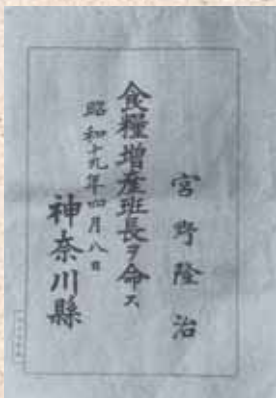 宮野隆治
食糧増産班長ヲ命ス
昭和十九年四月八日
神奈川縣